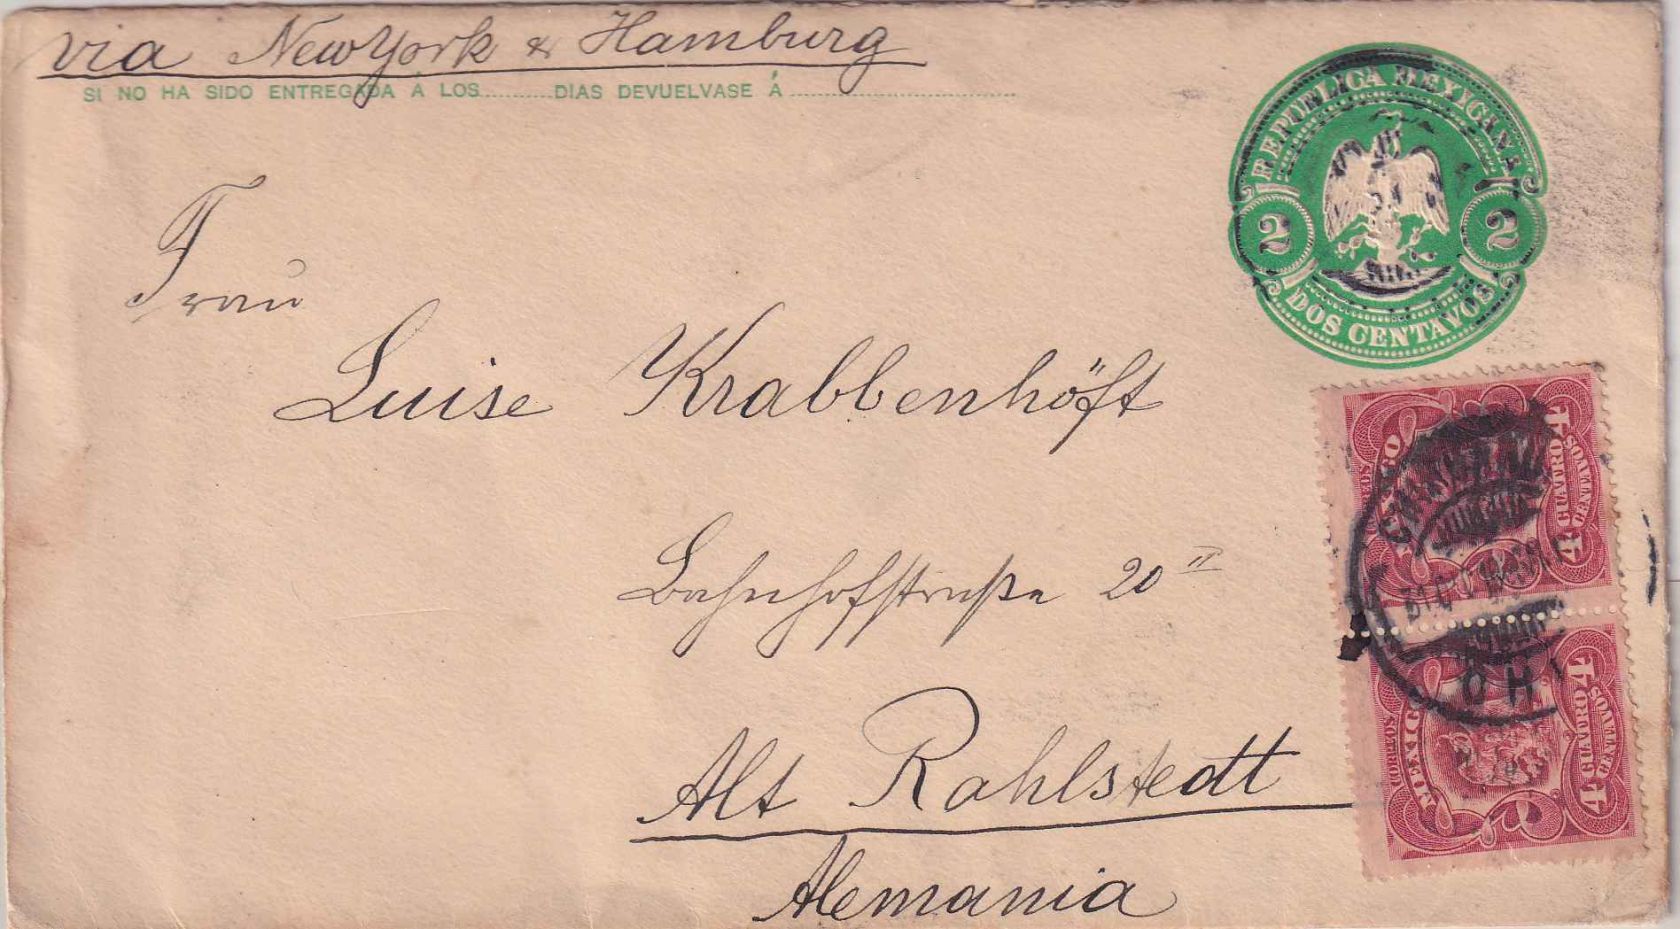 via New York & Hamburg
SI NO HA SIDO ENTREGADA Á LOS..........DIAS DEVUELVASE Á
REPUBLICA MEXICANA
2 2
DOS CENTAVOS
Frau
Luise Krabbenhöft
Bahnhofstraße 20 II
Alt Rahlstedt
Alemania
CORREOS MEXICO
4 CUATRO 4
CENTAVOS
CHI
CORREOS MEXICO
4 CUATRO 4
CENTAVOS